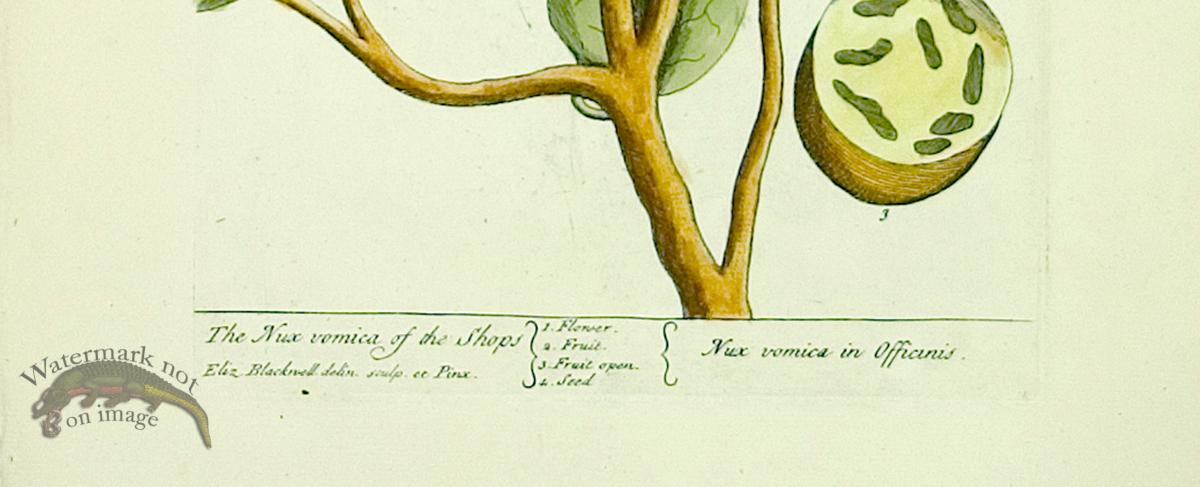 3
The Nux vomica of the Shops
Eliz. Blackwell delin. sculp. et Pinx.
1. Flower.
2. Fruit.
3. Fruit open.
4. Seed
Nux vomica in Officinis.
Watermark not
on image